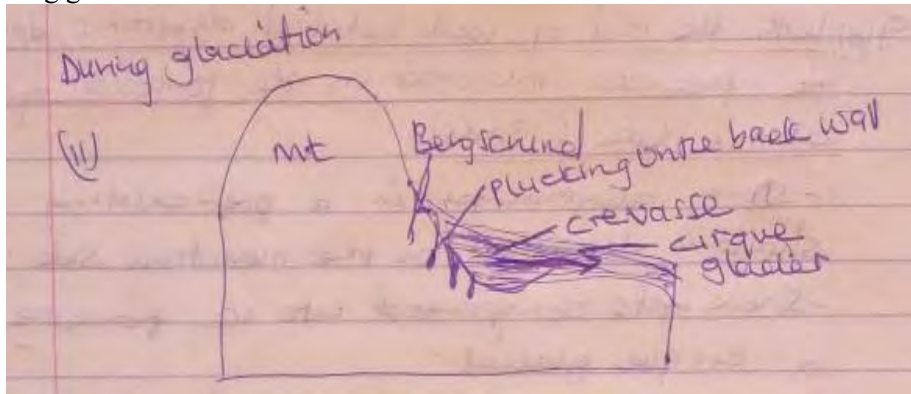 During glaciation
(11)
mt
Bergschund
plucking on the back wall
crevasse
cirque
glacier